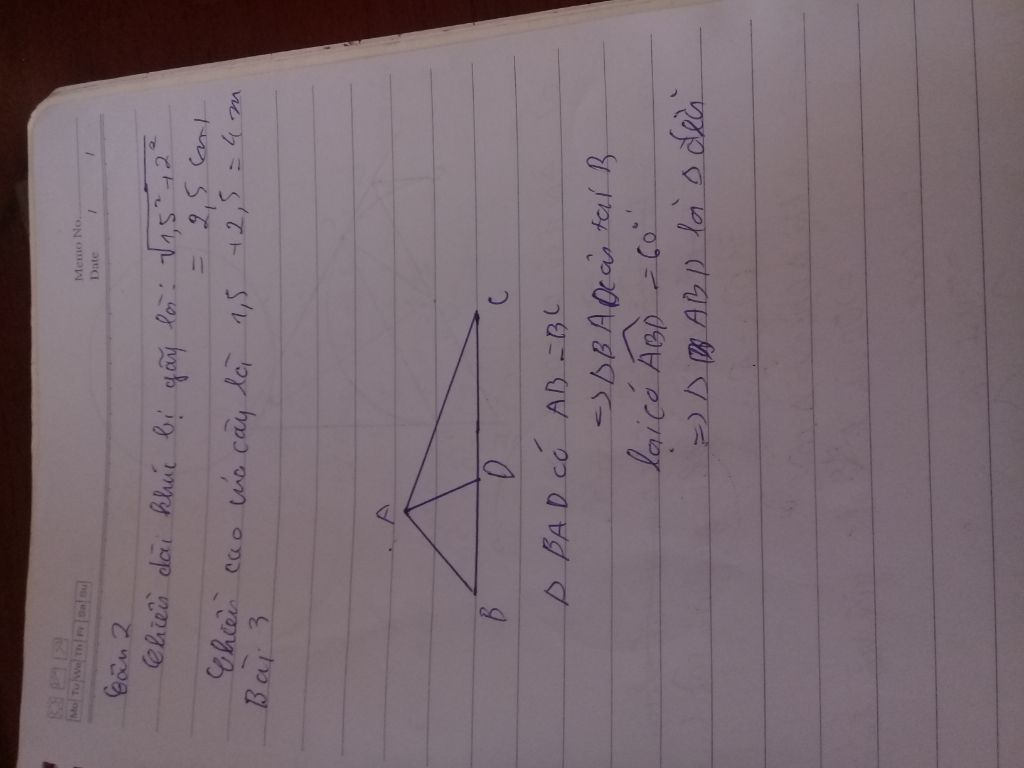 Memo No. /
Date / /
Mo Tu We Th Fr Sa Su
Câu 2
Chiều dài khúc bị gãy là: √1,5²+2²
= 2,5 (cm)
Chiều cao của cây là 1,5 + 2,5 = 4 m
Bài 3
A
B D C
Δ BAD có AB = BC
=> Δ BAD cân tại B
lại có ABD = 60°
=> Δ ABD là Δ đều